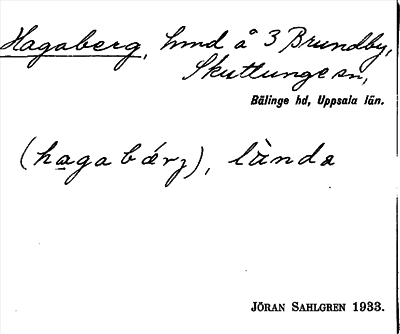 Hagaberg, hmd å 3 Brundby,
Skuttunge sn,
Bälinge hd, Uppsala län.
(hagabärj), lùnda
JÖRAN SAHLGREN 1933.